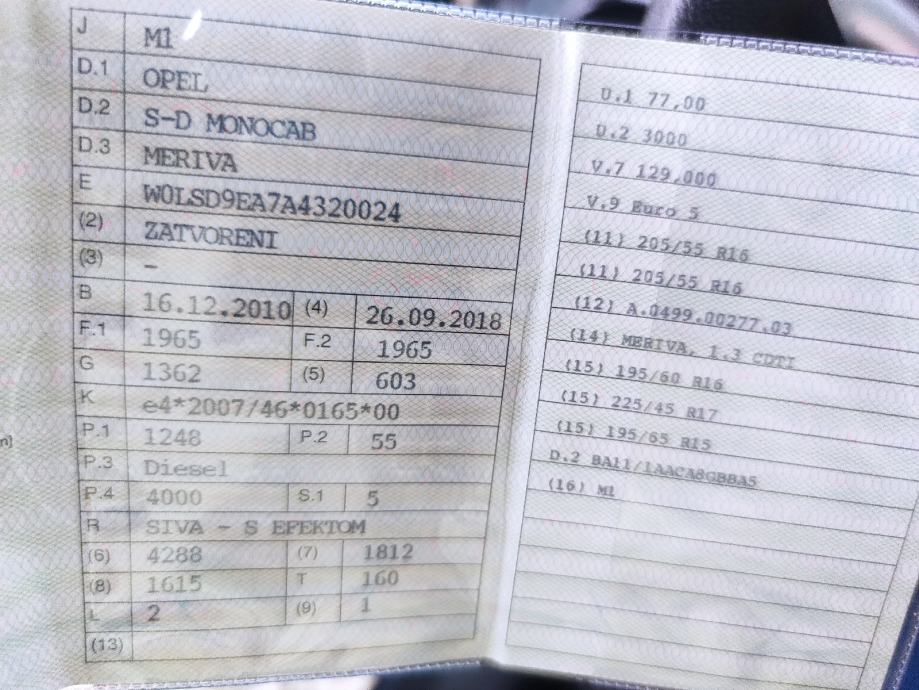 J M1
D.1 OPEL
D.2 S-D MONOCAB
D.3 MERIVA
E W0LSD9EA7A4320024
(2) ZATVORENI
(3) –
B 16.12.2010 (4) 26.09.2018
F.1 1965 F.2 1965
G 1362 (5) 603
K e4*2007/46*0165*00
P.1 1248 P.2 55
P.3 Diesel
P.4 4000 S.1 5
R SIVA - S EFEKTOM
(6) 4288 (7) 1812
(8) 1615 T 160
L 2 (9) 1
(13)
U.1 77,00
U.2 3000
V.7 129,000
V.9 Euro 5
(11) 205/55 R16
(11) 205/55 R16
(12) A.0499.00277.03
(14) MERIVA, 1.3 CDTI
(15) 195/60 R16
(15) 225/45 R17
(15) 195/65 R15
D.2 BA11/1AACA8GBBA5
(16) M1